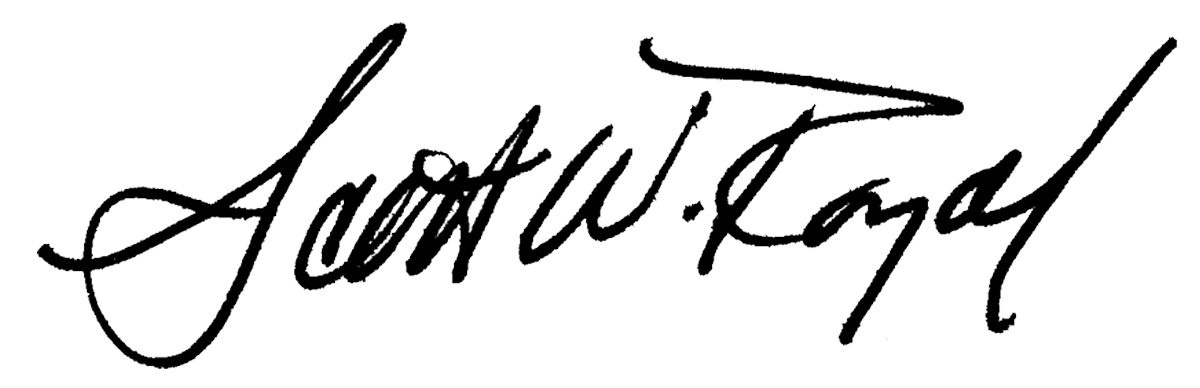 Scott W. Royal